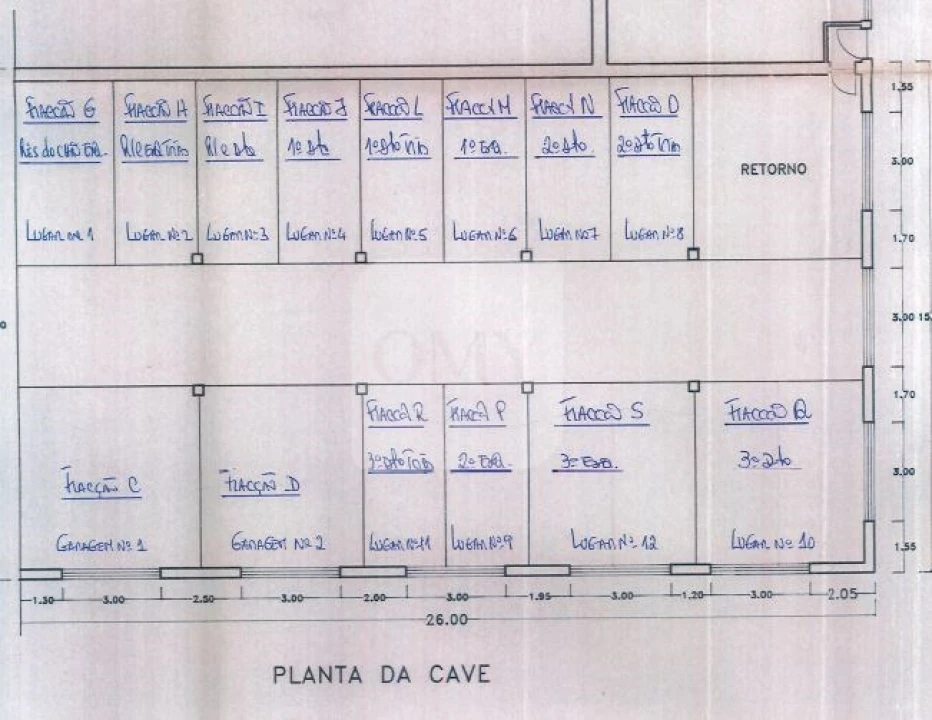 FRACCÃO G
Rés do CHÃO ESQ.
LUGAR Nº 1
FRACCÃO H
LUGAR Nº 2
FRACCÃO I
R/C Dto
LUGAR Nº 3
FRACCÃO J
1º Dto
LUGAR Nº 4
FRACCÃO L
LUGAR Nº 5
FRACCÃO M
1º ESQ.
LUGAR Nº 6
FRACCÃO N
2º Dto.
LUGAR Nº 7
FRACCÃO O
LUGAR Nº 8
RETORNO
1.55
3.00
1.70
3.00
1.70
3.00
1.55
OMY
FRACÇÃO C
GARAGEM Nº 1
FRACÇÃO D
GARAGEM Nº 2
FRACCÃO R
LUGAR Nº 11
FRACCÃO P
2º ESQ.
LUGAR Nº 9
FRACCÃO S
3º ESQ.
LUGAR Nº 12
FRACCÃO Q
3º Dto
LUGAR Nº 10
1.30 3.00 2.50 3.00 2.00 3.00 1.95 3.00 1.20 3.00 2.05
26.00
PLANTA DA CAVE